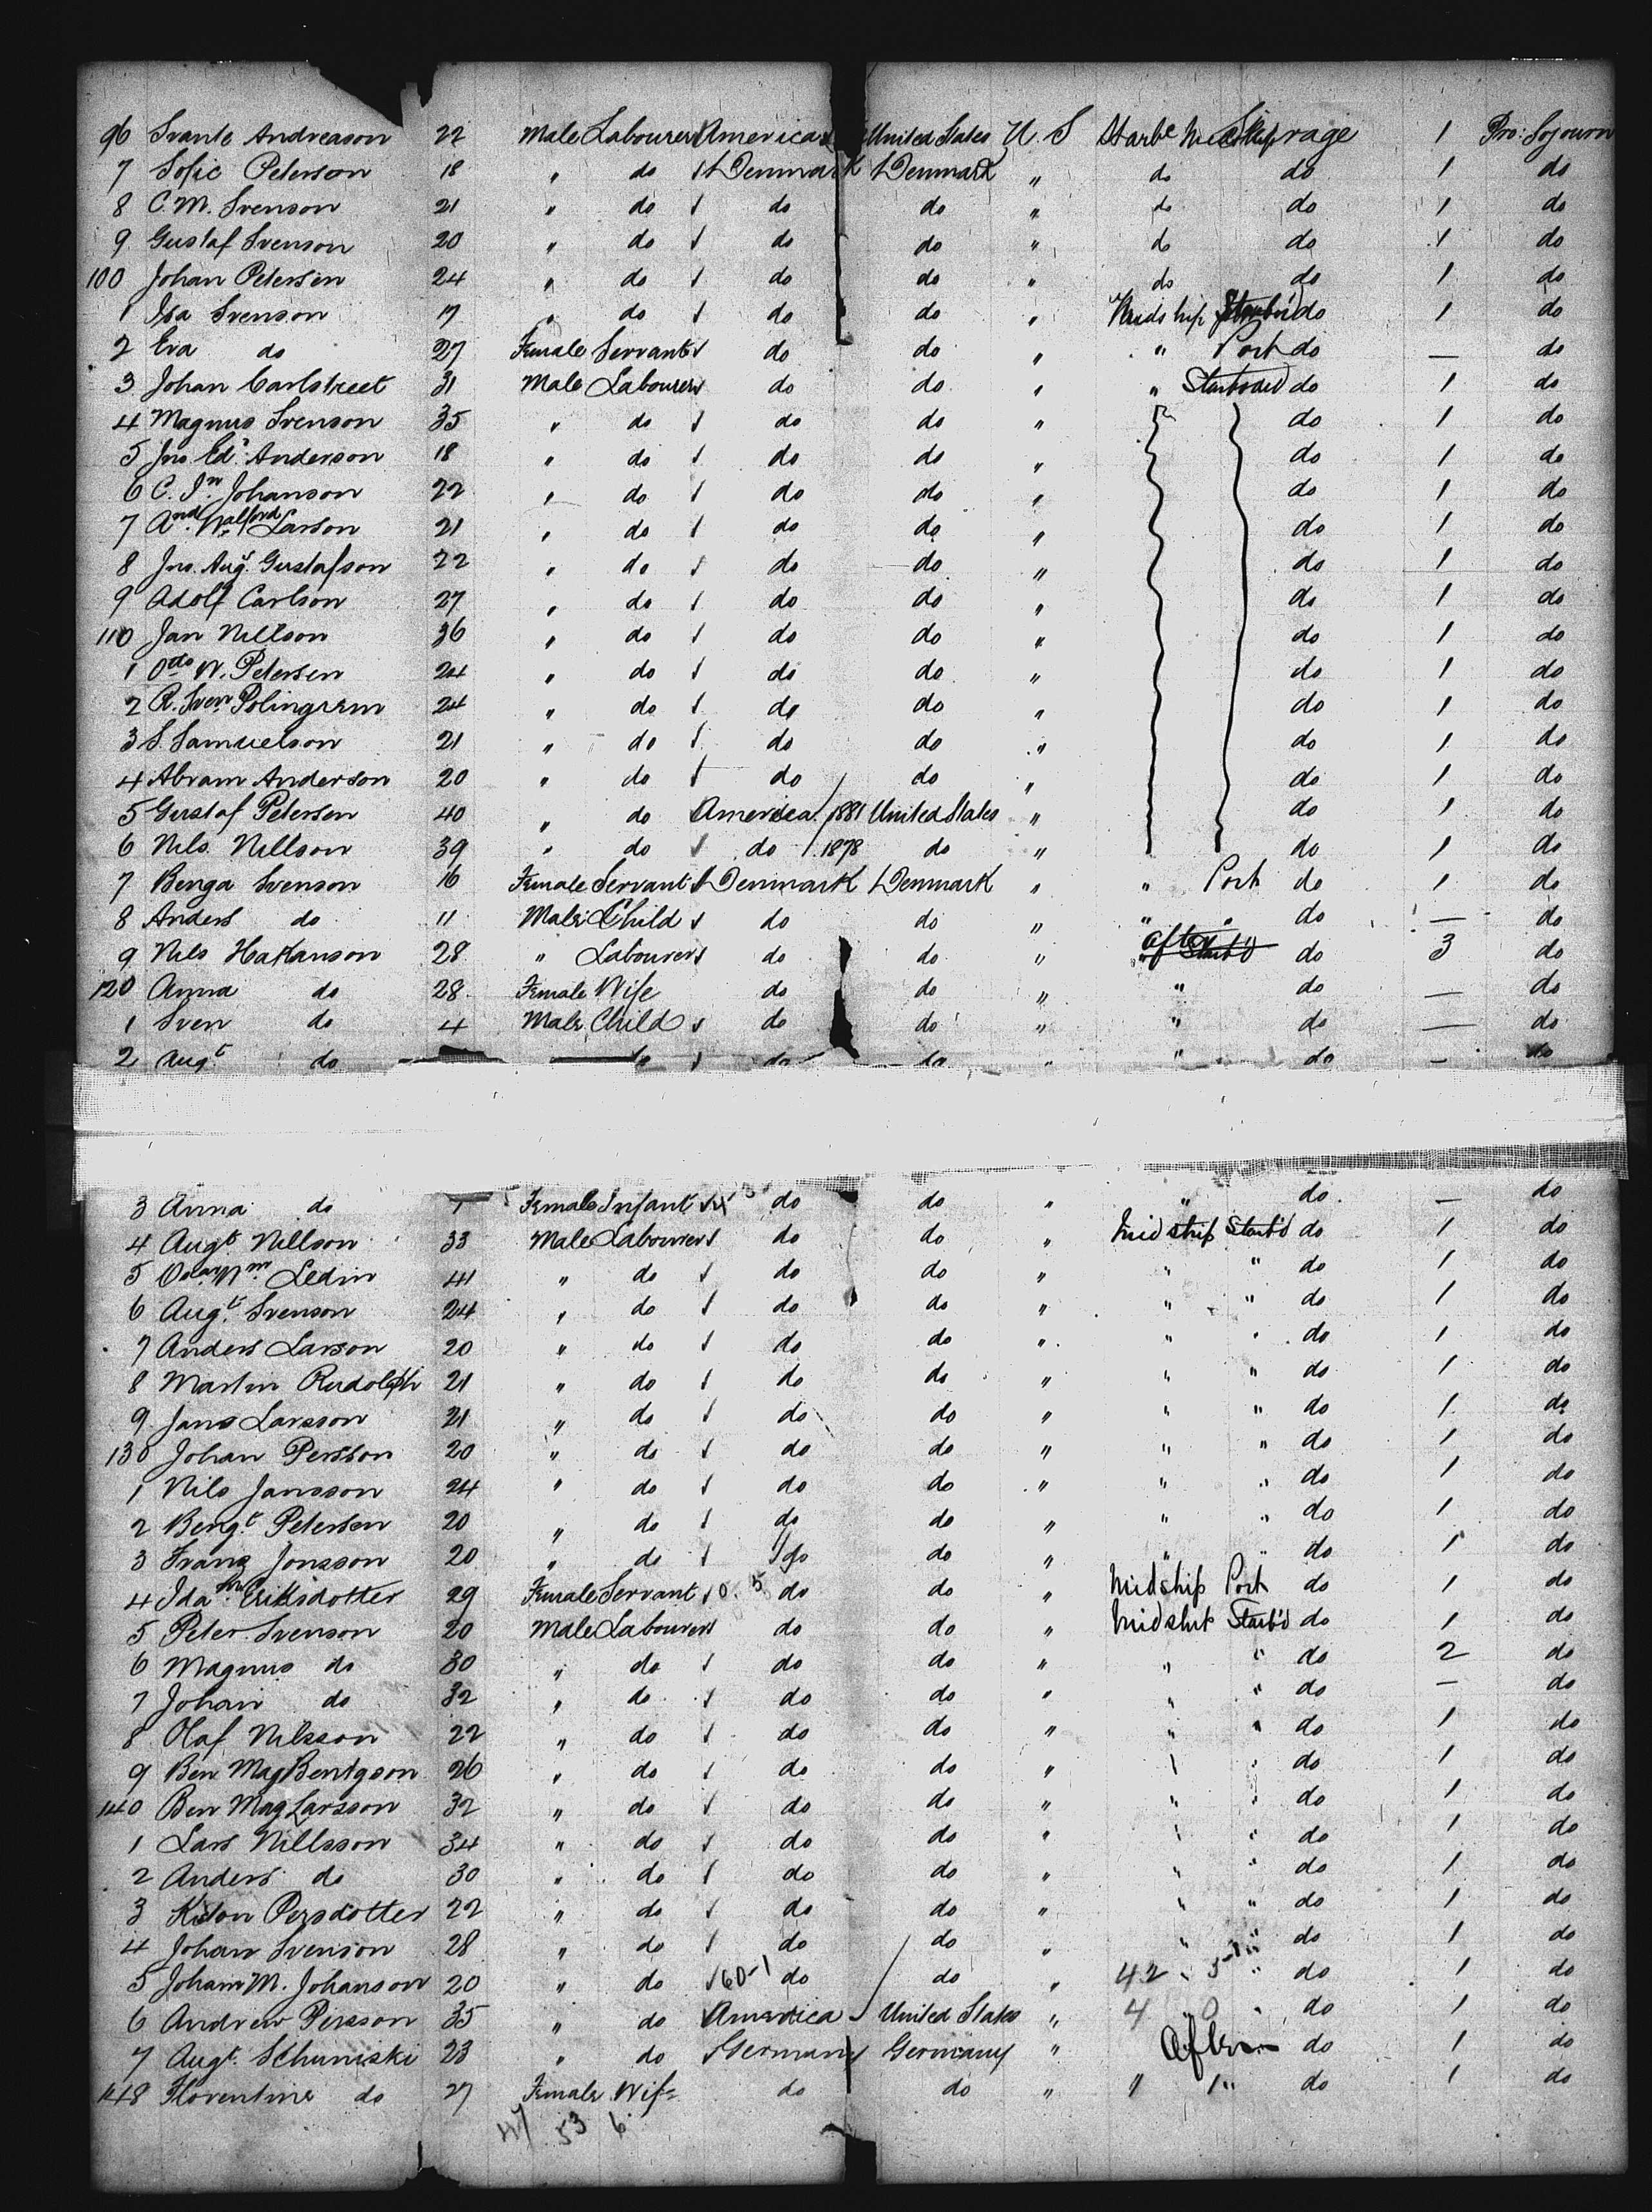 96 Svante Andreason 22 Male Labourer America United States U.S Starb'd Midship Steerage 1 Pro: Sojourn
7 Sofie Peterson 18 " do Denmark Denmark " do do 1 do
8 C.M. Svenson 21 " do do do " do do 1 do
9 Gustaf Svenson 20 " do do do " do do 1 do
100 Johan Petersen 24 " do do do " do do 1 do
1 Isa Svenson 17 " do do do " Midship Starb'd do 1 do
2 Eva do 27 Female Servant do do " " Port do — do
3 Johan Carlstreet 31 Male Labourer do do " " Starboard do 1 do
4 Magnus Svenson 35 " do do do " do 1 do
5 Jno. Ed. Anderson 18 " do do do " do 1 do
6 C. Jn. Johanson 22 " do do do " do 1 do
7 And. Walford Larson 21 " do do do " do 1 do
8 Jno. Aug. Gustafson 22 " do do do " do 1 do
9 Adolf Carlson 27 " do do do " do 1 do
110 Jan Nillson 36 " do do do " do 1 do
1 Otto W. Petersen 24 " do do do " do 1 do
2 R. Sven Polingrem 24 " do do do " do 1 do
3 S. Samuelson 21 " do do do " do 1 do
4 Abram Anderson 20 " do do do " do 1 do
5 Gustaf Petersen 40 " do America 1881 United States " do 1 do
6 Nils Nillson 39 " do do 1878 do " do 1 do
7 Benga Svenson 16 Female Servant Denmark Denmark " " Port do 1 do
8 Anders do 11 Male Child do do " " " do — do
9 Nils Hakanson 28 " Labourer do do " After Starb'd do 3 do
120 Anna do 28 Female Wife do do " " do — do
1 Sven do 4 Male Child do do " " do — do
2 Augt do do do do " " do — do
3 Anna do Female Infant do do " " do — do
4 Augt Nillson 33 Male Labourer do do " Midship Starb'd do 1 do
5 Ledin 41 " do do do " " " do 1 do
6 Augt Svenson 24 " do do do " " " do 1 do
7 Anders Larson 20 " do do do " " " do 1 do
8 Martin Rudolph 21 " do do do " " " do 1 do
9 Jans Larsson 21 " do do do " " " do 1 do
130 Johan Persson 20 " do do do " " " do 1 do
1 Nils Jansson 24 " do do do " " " do 1 do
2 Bengt Petersen 20 " do do do " " " do 1 do
3 Franz Jonsson 20 " do do do " " " do 1 do
4 Ida Eriksdotter 29 Female Servant do do " Midship Port do 1 do
5 Peter Svenson 20 Male Labourer do do " Midship Starb'd do 1 do
6 Magnus do 30 " do do do " " " do 2 do
7 Johan do 32 " do do do " " " do — do
8 Olaf Nilsson 22 " do do do " " " do 1 do
9 Ben Mag Bentgson 26 " do do do " " " do 1 do
140 Ben Mag Larsson 32 " do do do " " " do 1 do
1 Lars Nillsson 34 " do do do " " " do 1 do
2 Anders do 30 " do do do " " " do 1 do
3 Persdotter 22 " do do do " " " do 1 do
4 Johan Svenson 28 " do do do " " " do 1 do
5 Johan M. Johanson 20 " do 60-1 do do " 42 " " do 1 do
6 Andrew Persson 35 " do America United States " 4 0 " do 1 do
7 Augt. Schuniski 23 " do Germany Germany " After do 1 do
148 Florentine do 27 Female Wife do do " " " do 1 do
47 53 6